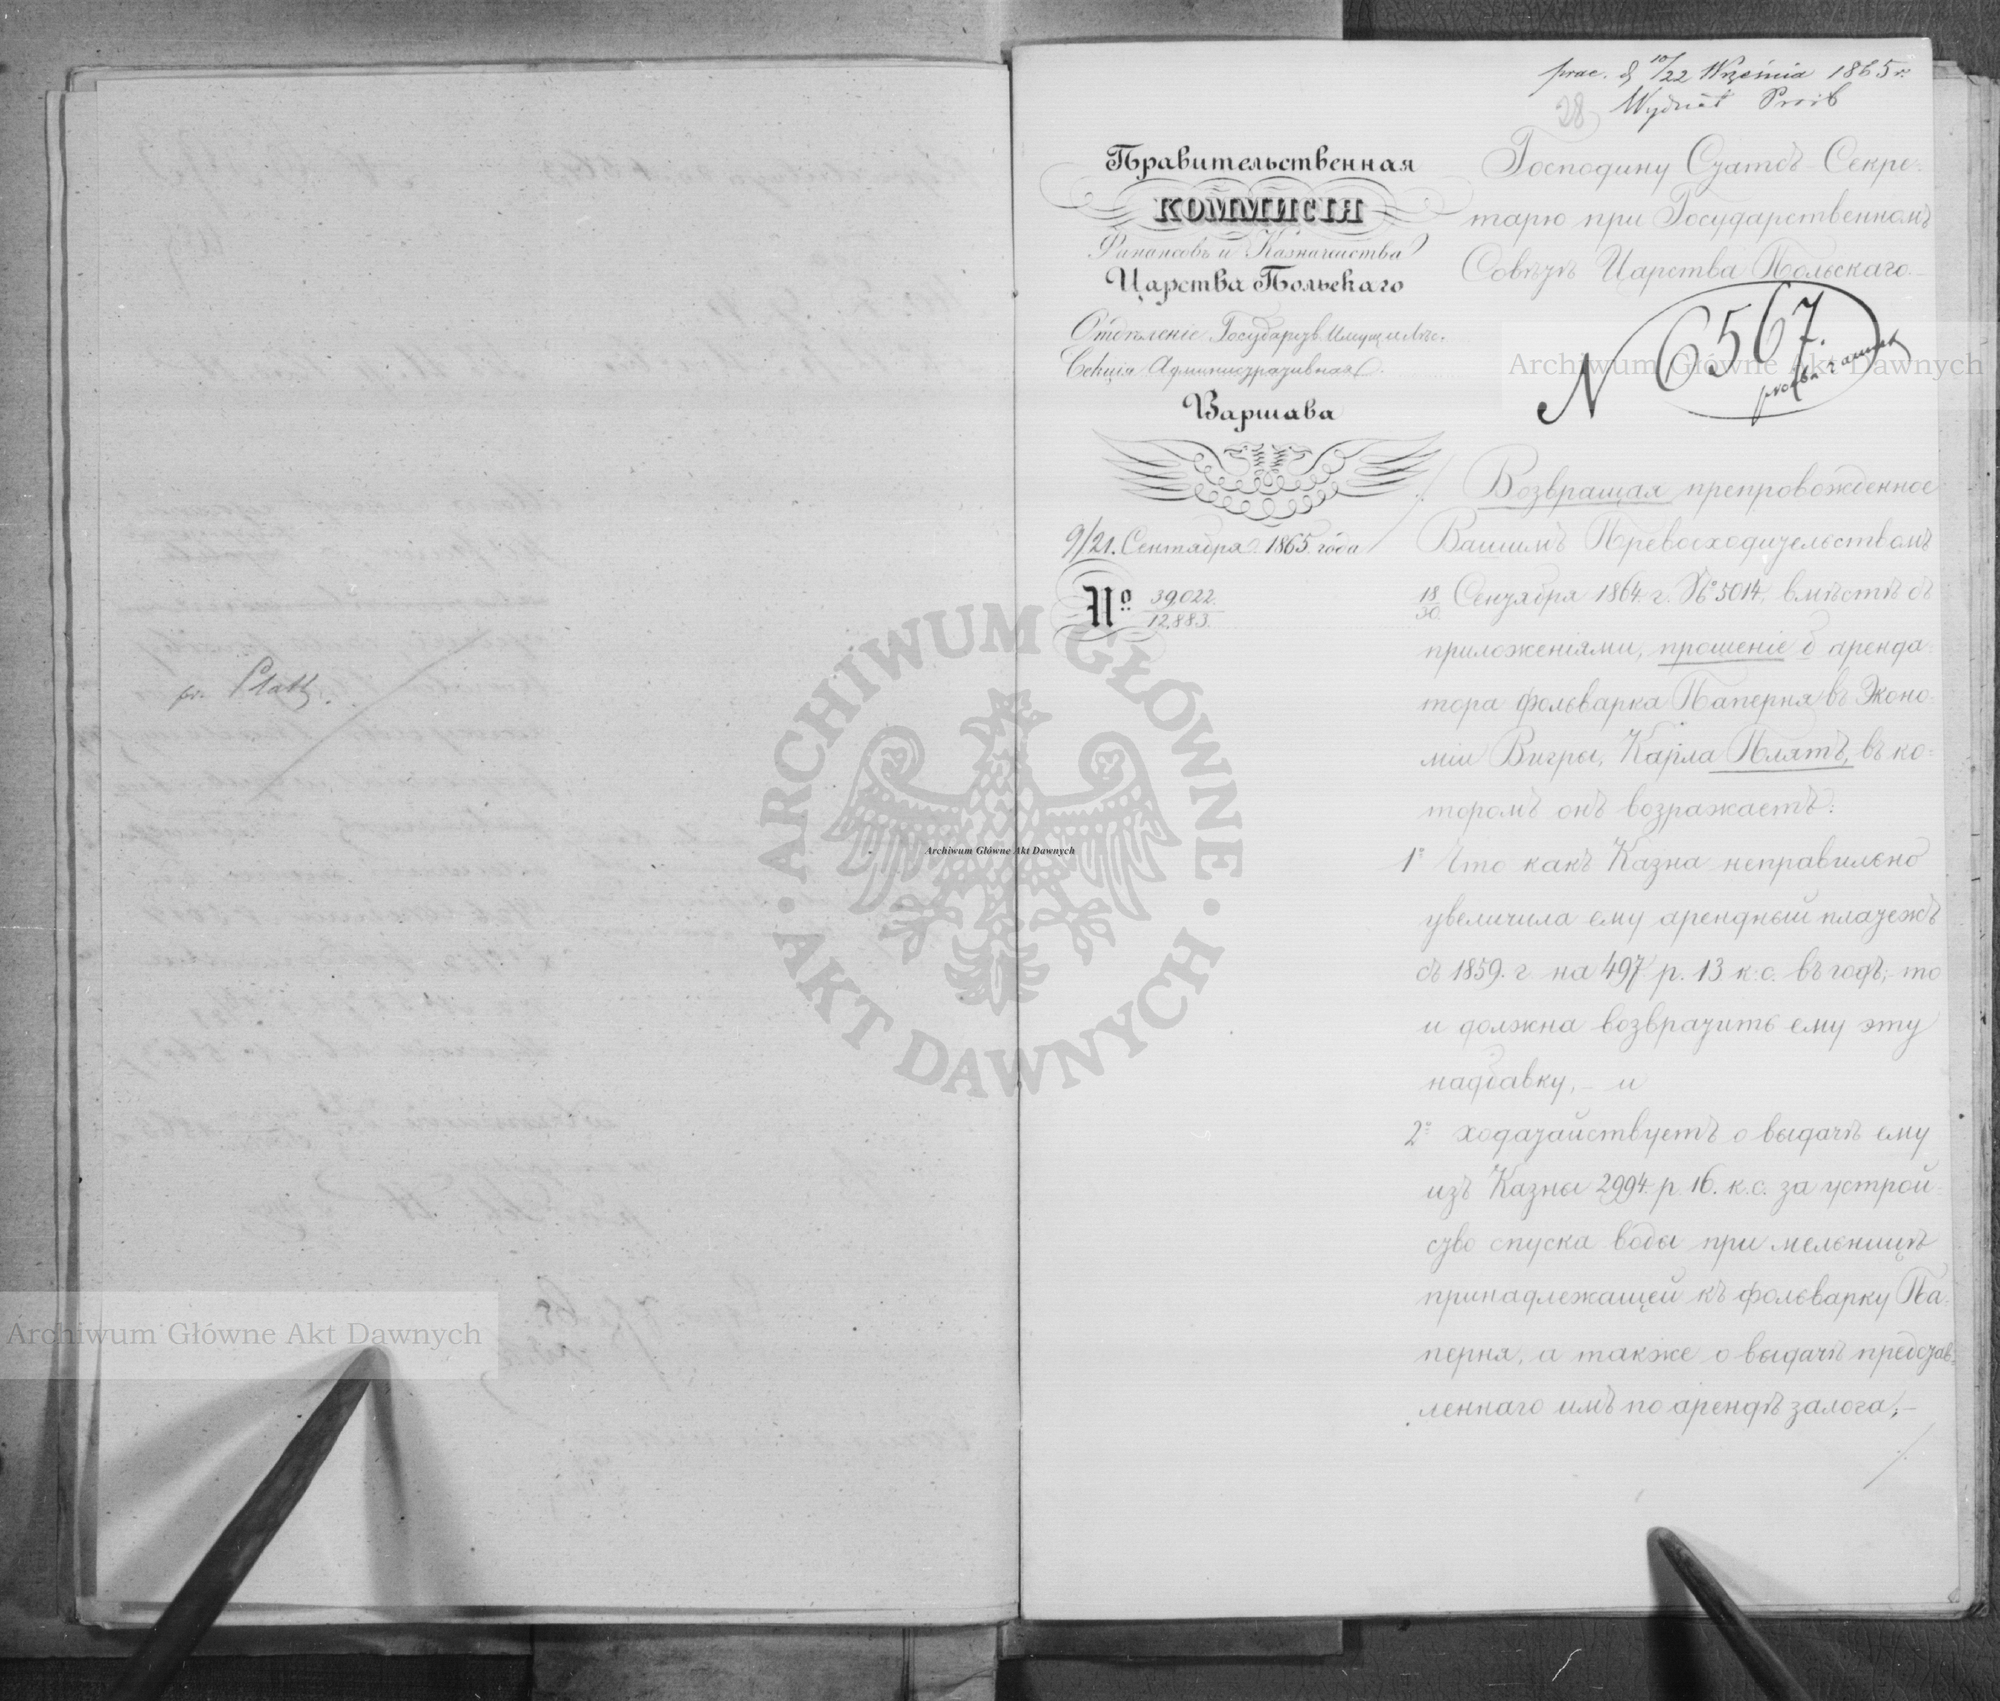 pr. Platz.
10/22 Września 1865 r.
Wydział
28
Правительственная
КОММИСІЯ
Финансовъ и Казначейства
Царства Польскаго
Отдѣленіе Государств. Имущ. и Лѣс.
Секція Административная.
Варшава
9/21. Сентября 1865. года
№ 39,022. / 12,883.
Господину Статсъ-Секре-
тарю при Государственномъ
Совѣтѣ Царства Польскаго.
N 6567.
Возвращая препровожденное
Вашимъ Превосходительствомъ
18/30 Сентября 1864. г. № 5014, вмѣстѣ съ
приложеніями, прошеніе б. аренда-
тора фольварка Паперня въ Эконо-
міи Вигры, Карла Плятъ, въ ко-
торомъ онъ возражаетъ:
1° Что какъ Казна неправильно
увеличила ему арендный платежъ
съ 1859. г. на 497 р. 13 к. с. въ годъ, то
и должна возвратить ему эту
надбавку, – и
2° ходатайствуетъ о выдачѣ ему
изъ Казны 2994. р. 16. к. с. за устрой-
ство спуска воды при мельницѣ
принадлежащей къ фольварку Па-
перня, а также о выдачѣ представ-
леннаго имъ по арендѣ залога, –
Archiwum Główne Akt Dawnych
Archiwum Główne Akt Dawnych
Archiwum Główne Akt Dawnych
ARCHIWUM GŁÓWNE
AKT DAWNYCH